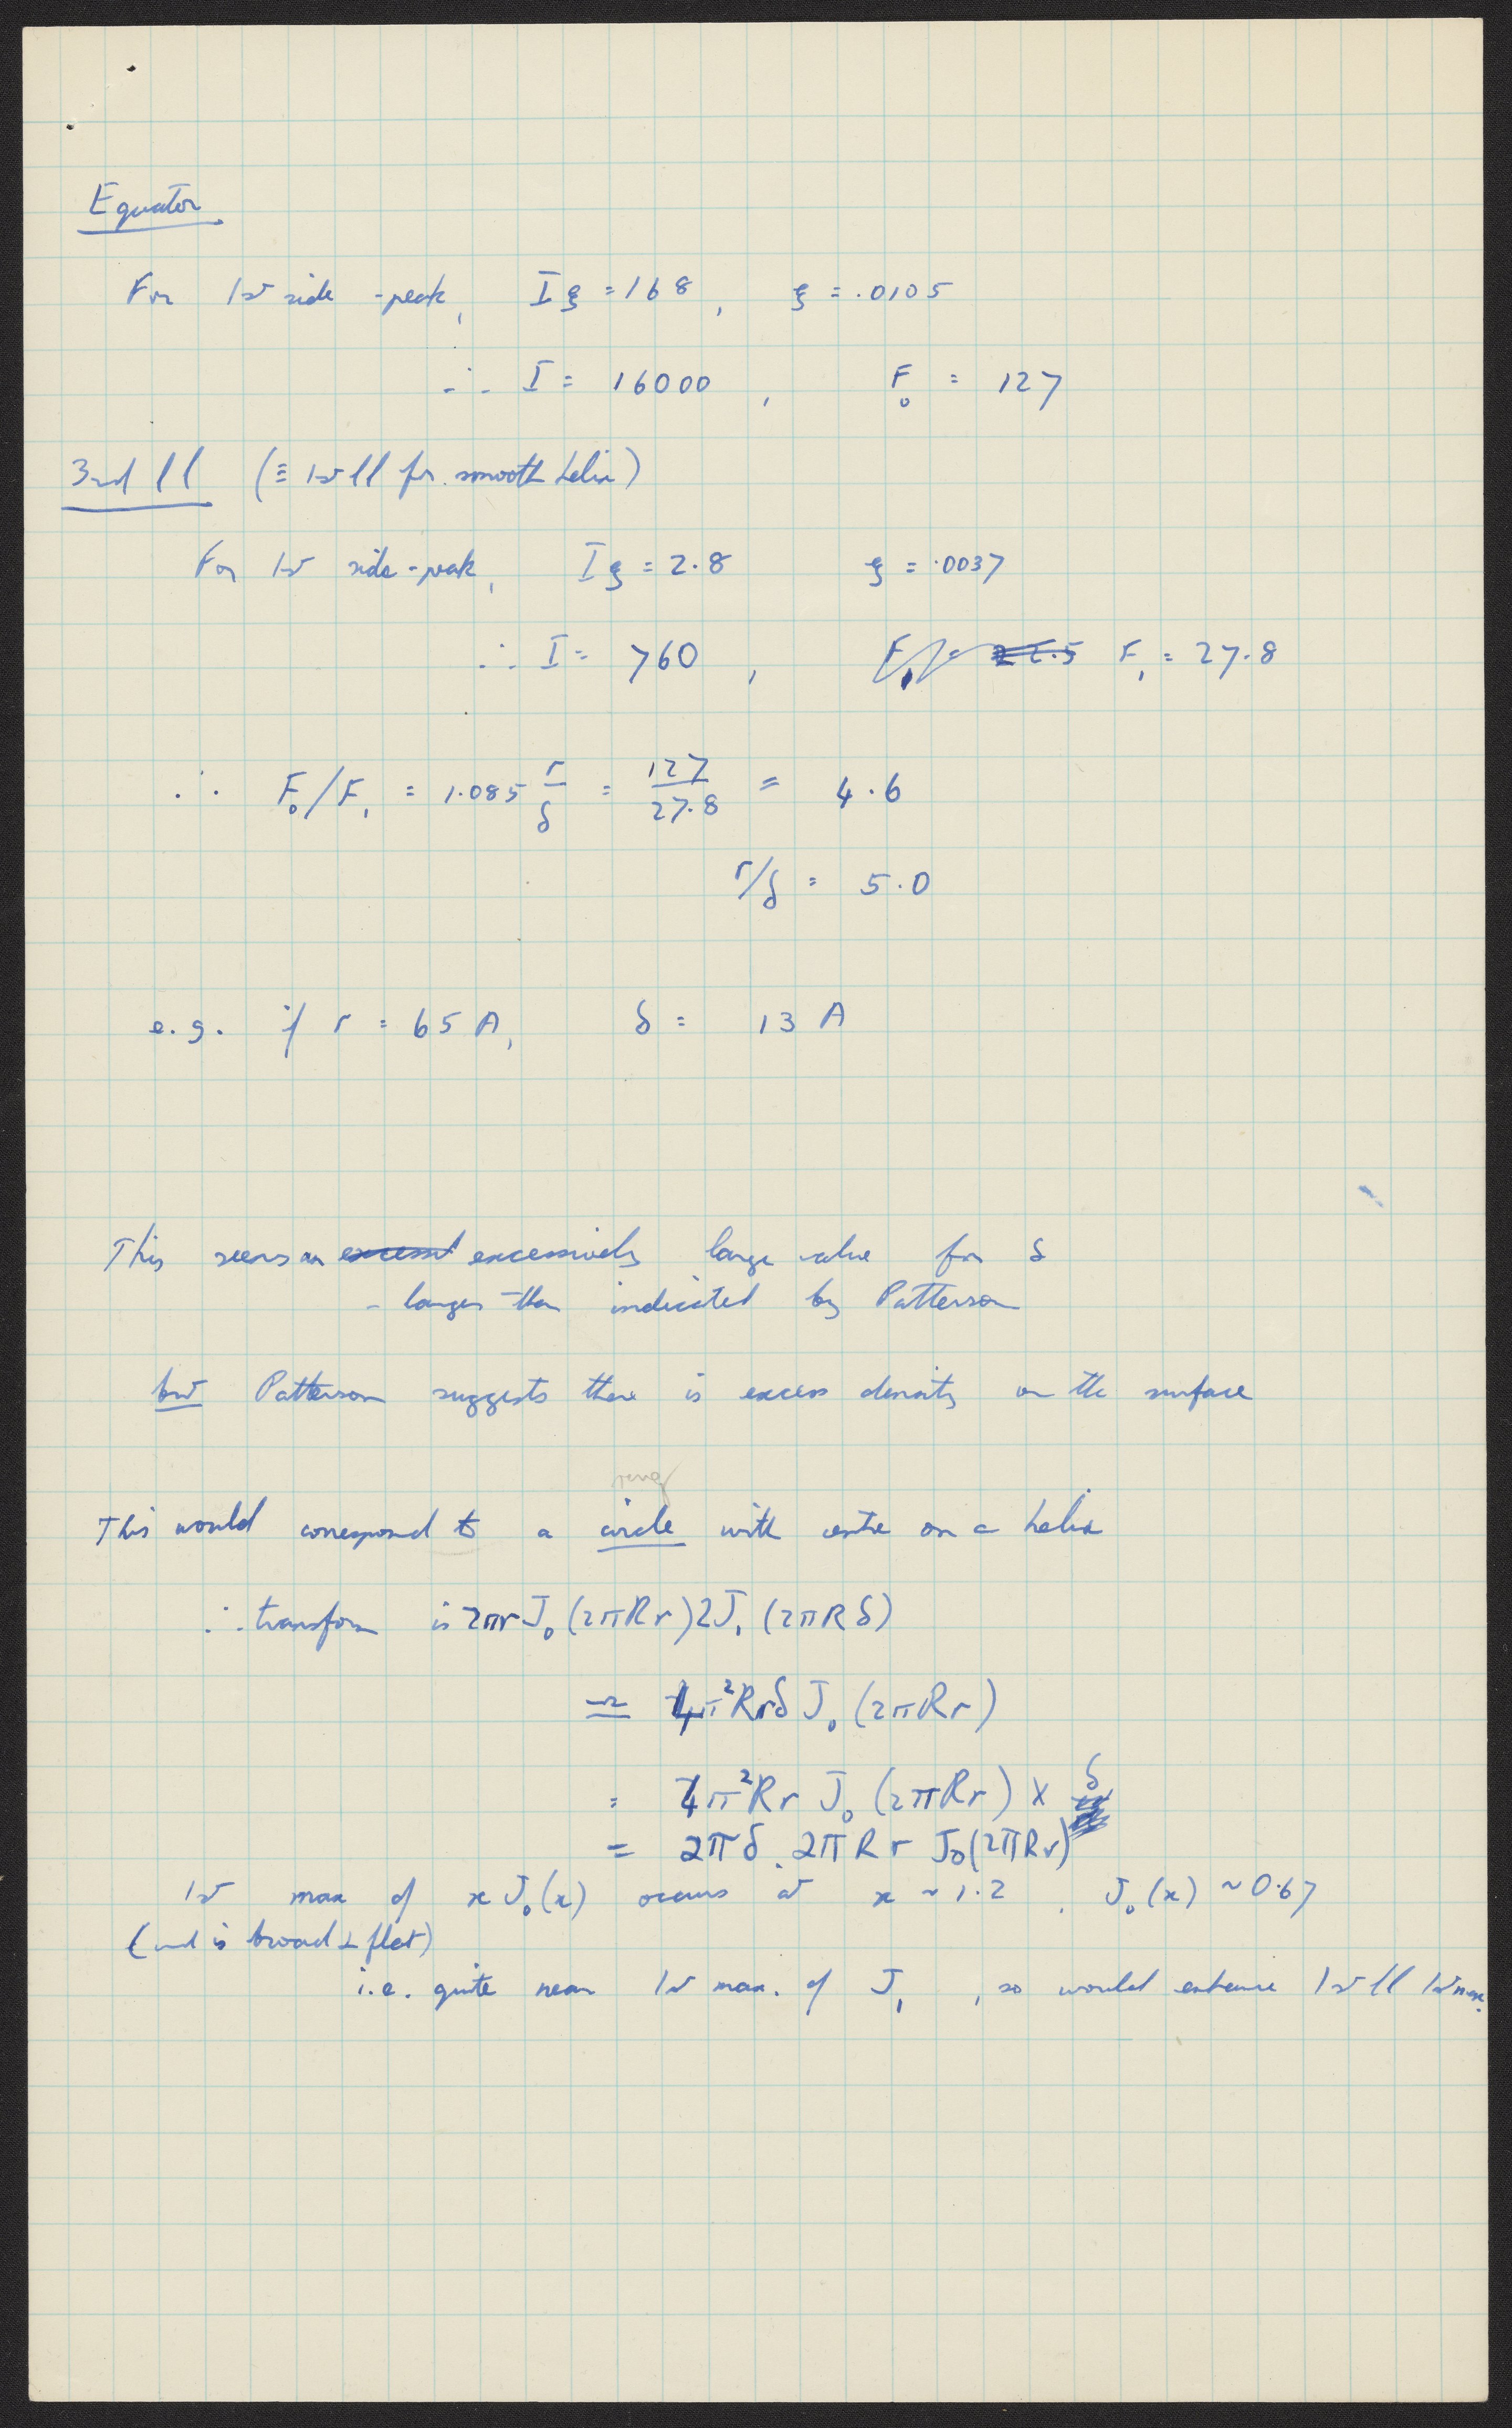 Equator
For 1st side-peak, Iξ = 168, ξ = .0105
∴ I = 16000, F₀ = 127
3rd ll (≡ 1st ll for smooth helix)
For 1st side-peak, Iξ = 2.8 ξ = .0037
∴ I = 760, F₁ = 22.5 F₁ = 27.8
∴ F₀/F₁ = 1.085 r/δ = 127/27.8 = 4.6
r/δ = 5.0
e.g. if r = 65 A, δ = 13 A
This seems an excessi excessively large value for δ
- larger than indicated by Patterson
but Patterson suggests there is excess density on the surface
ring
This would correspond to a circle with centre on a helix
∴ transform is 2πr J₀(2πRr) 2J₁(2πRδ)
≃ 4π²Rrδ J₀(2πRr)
= 4π²Rr J₀(2πRr) × δ
= 2πδ . 2πRr J₀(2πRr)
1st max of x J₀(x) occurs at x ~ 1.2, J₀(x) ~ 0.67
(and is broad & flat)
i.e. quite near 1st max. of J₁, so would enhance 1st ll 1st max.